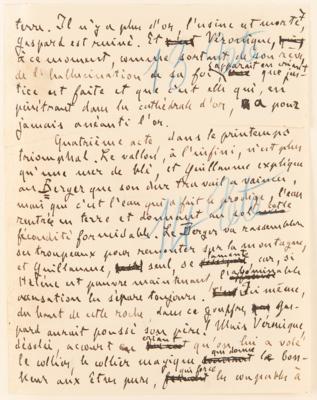 terre. Il n'y a plus d'or, l'usine est morte,
Gaspard est ruiné. Et Véronique,
à ce moment, comme sortant de son rêve,
de l'hallucination de sa foi, apparaît en criant que jus-
tice est faite et que c'est elle qui, en
pénétrant dans la cathédrale d'or, a pour
jamais anéanti l'or.
Quatrième acte, dans le printemps
triomphal. Le vallon, à l'infini, n'est plus
qu'une mer de blé, et Guillaume explique
au Berger que son dur travail a vaincu,
mais que c'est l'eau qui a fait le prodige, l'eau
rentrée en terre et donnant au sol cette
fécondité formidable. Le Berger va rassembler
ses troupeaux pour remonter sur la montagne,
et Guillaume, seul, se lamente, car, si
Hélène est pauvre maintenant, l'abominable
accusation les sépare toujours. Lui-même,
du haut de cette roche, dans ce gouffre, Gas-
pard aurait poussé son père! Mais Véronique,
désolée, accourt en criant qu'on lui a volé
le collier, le collier magique qui donne le bon-
heur aux êtres purs, qui force les coupables à